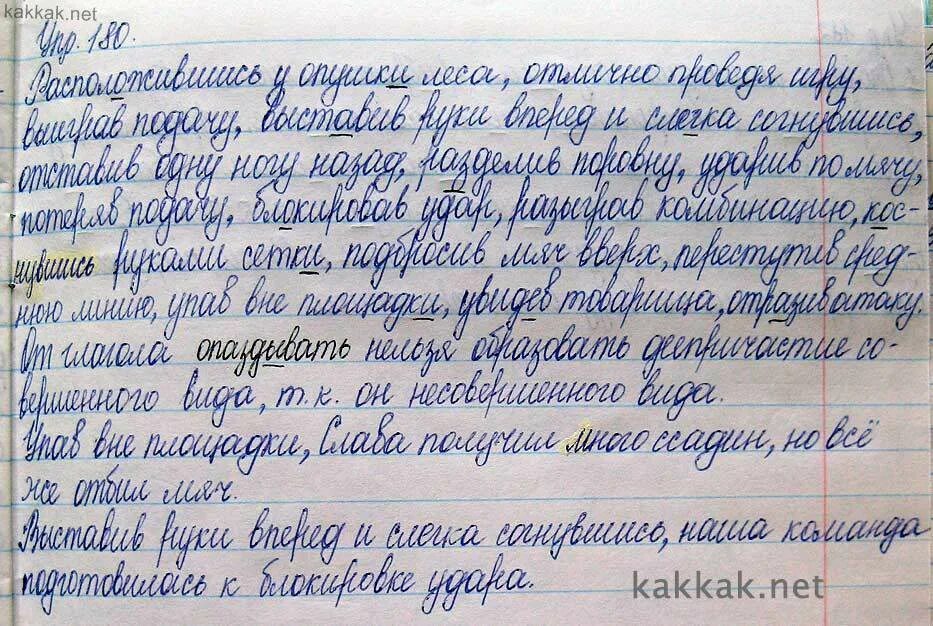 kakkak.net
Упр. 180.
Расположившись у опушки леса, отлично проведя игру,
выиграв подачу, выставив руки вперед и слегка согнувшись,
отставив одну ногу назад, разделив поровну, ударив по мячу,
потеряв подачу, блокировав удар, разыграв комбинацию, кос-
нувшись руками сетки, подбросив мяч вверх, переступив сред-
нюю линию, упав вне площадки, увидев товарища, отразив атаку.
От глагола опаздывать нельзя образовать деепричастие со-
вершенного вида, т.к. он несовершенного вида.
Упав вне площадки, Слава получил много ссадин, но всё
же отбил мяч.
Выставив руки вперед и слегка согнувшись, наша команда
подготовилась к блокировке удара.
kakkak.net